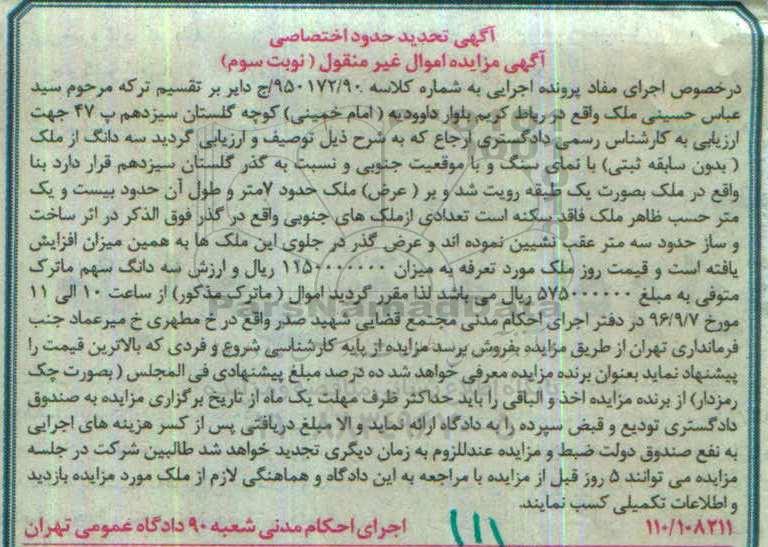 آگهی تحدید حدود اختصاصی
آگهی مزایده اموال غیر منقول (نوبت سوم)
درخصوص اجرای مفاد پرونده اجرایی به شماره کلاسه ۹۵۰۱۷۲/۹۰/ج دایر بر تقسیم ترکه مرحوم سید
عباس حسینی ملک واقع در رباط کریم بلوار داوودیه (امام خمینی) کوچه گلستان سیزدهم پ ۴۷ جهت
ارزیابی به کارشناس رسمی دادگستری ارجاع که به شرح ذیل توصیف و ارزیابی گردید سه دانگ از ملک
(بدون سابقه ثبتی) با نمای سنگ و با موقعیت جنوبی و نسبت به گذر گلستان سیزدهم قرار دارد بنا
واقع در ملک بصورت یک طبقه رویت شد و بر (عرض) ملک حدود ۷متر و طول آن حدود بیست و یک
متر حسب ظاهر ملک فاقد سکنه است تعدادی ازملک های جنوبی واقع در گذر فوق الذکر در اثر ساخت
و ساز حدود سه متر عقب نشیین نموده اند و عرض گذر در جلوی این ملک ها به همین میزان افزایش
یافته است و قیمت روز ملک مورد تعرفه به میزان ۱۱۵۰۰۰۰۰۰۰ ریال و ارزش سه دانگ سهم ماترک
متوفی به مبلغ ۵۷۵۰۰۰۰۰۰ ریال می باشد لذا مقرر گردید اموال (ماترک مذکور) از ساعت ۱۰ الی ۱۱
مورخ ۹۶/۹/۷ در دفتر اجرای احکام مدنی مجتمع قضایی شهید صدر واقع در خ مطهری خ میرعماد جنب
فرمانداری تهران از طریق مزایده بفروش برسد مزایده از پایه کارشناسی شروع و فردی که بالاترین قیمت را
پیشنهاد نماید بعنوان برنده مزایده معرفی خواهد شد ده درصد مبلغ پیشنهادی فی المجلس (بصورت چک
رمزدار) از برنده مزایده اخذ و الباقی را باید حداکثر ظرف مهلت یک ماه از تاریخ برگزاری مزایده به صندوق
دادگستری تودیع و قبض سپرده را به دادگاه ارائه نماید و الا مبلغ دریافتی پس از کسر هزینه های اجرایی
به نفع صندوق دولت ضبط و مزایده عنداللزوم به زمان دیگری تجدید خواهد شد طالبین شرکت در جلسه
مزایده می توانند ۵ روز قبل از مزایده با مراجعه به این دادگاه و هماهنگی لازم از ملک مورد مزایده بازدید
و اطلاعات تکمیلی کسب نمایند.
۱۱۰/۱۰۸۲۱۱ ۱۱۱ اجرای احکام مدنی شعبه ۹۰ دادگاه عمومی تهران
ParsNamadData